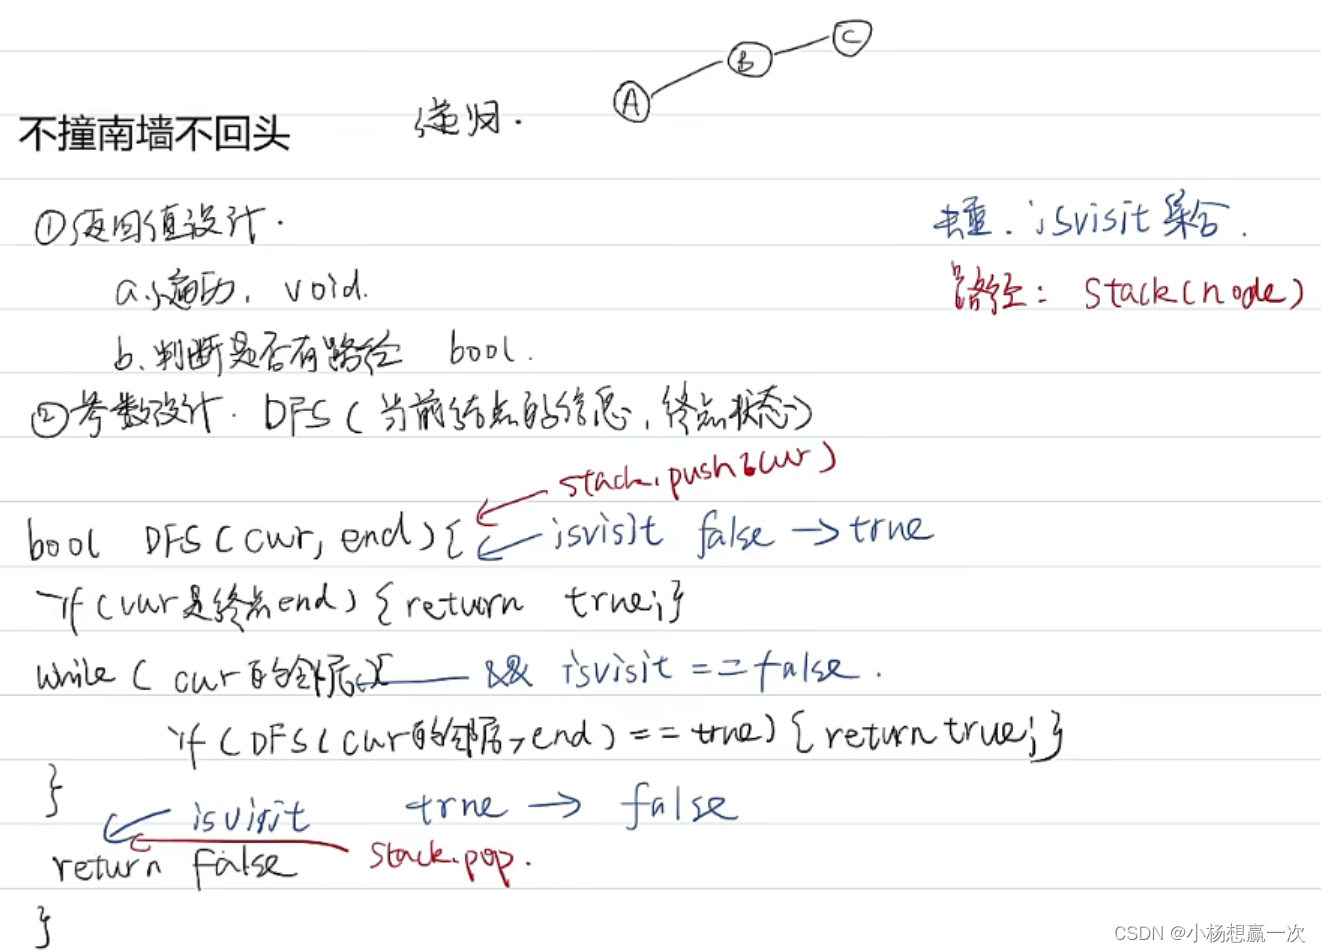 A B C
不撞南墙不回头 递归.
①返回值设计.
a.遍历. void.
b.判断是否有路径 bool.
去重. isvisit 集合.
路径: stack(node)
②参数设计. DFS(当前结点的信息,终点状态)
stack.push(cur)
bool DFS(cur, end){ isvisit false → true
if(cur是终点end){return true;}
while( cur的邻居){ && isvisit == false.
if(DFS(cur的邻居,end)==true){return true;}
}
isvisit true → false
return false stack.pop.
}
CSDN @小杨想赢一次